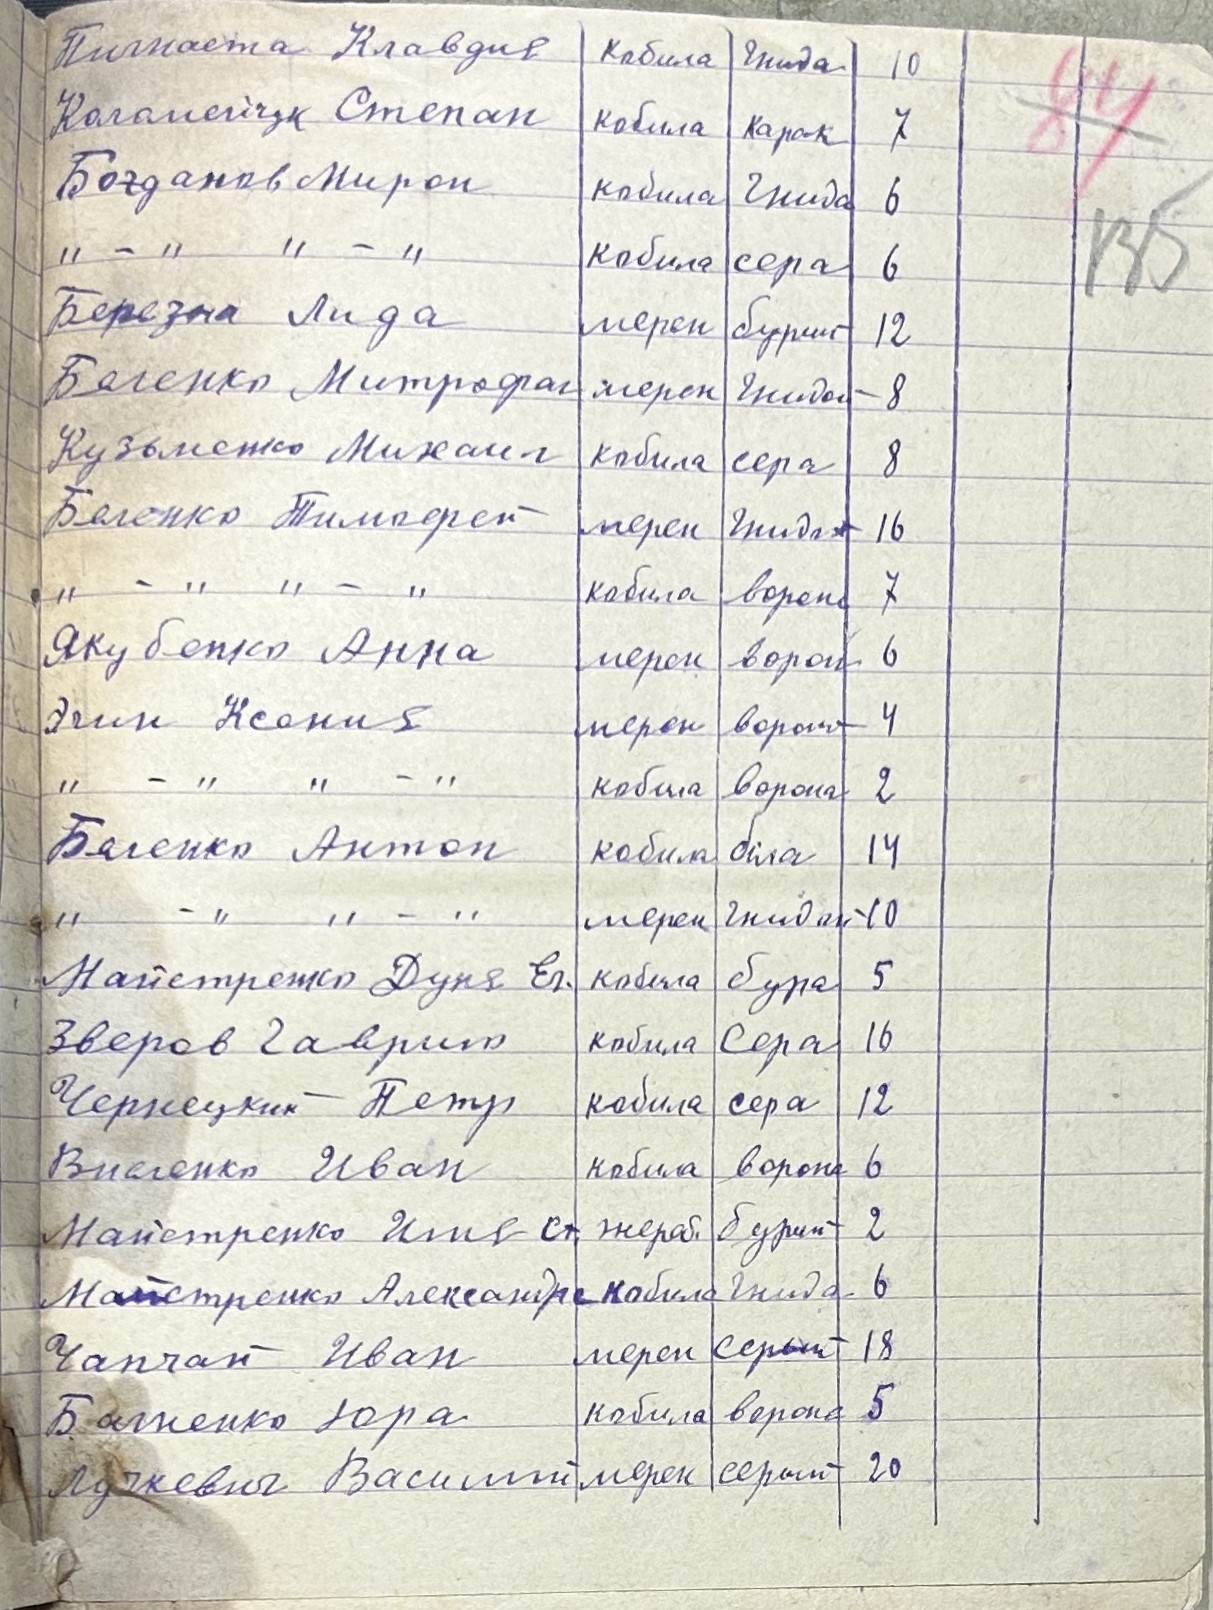 Пигнаста Клавдия кобила гнида 10
84
Коломейчук Степан кобила карак 7
Богданов Мирон кобила гнида 6
135
" - " " - " кобила сера 6
Березна Лида мерен бурий 12
Беленко Митрофан мерен гнидой 8
Кузьменко Михаил кобила сера 8
Беленко Тимофей мерен гнидой 16
" - " " - " кобила ворона 7
Якубенко Анна мерен ворон 6
Ксения мерен ворон 4
" - " " - " кобила ворона 2
Беленко Антон кобила біла 14
" - " " - " мерен гнидой 10
Майстренко Дуня Ег. кобила бура 5
Зверов Гаврило кобила Сера 16
Чернецкий Петр кобила сера 12
Иван кобила ворона 6
Майстренко Илия Ст. жереб. бурий 2
Майстренко Александра кобила гнида 6
Чапчай Иван мерен серый 18
Юра кобила ворона 5
Лучкевич Василий мерен серый 20